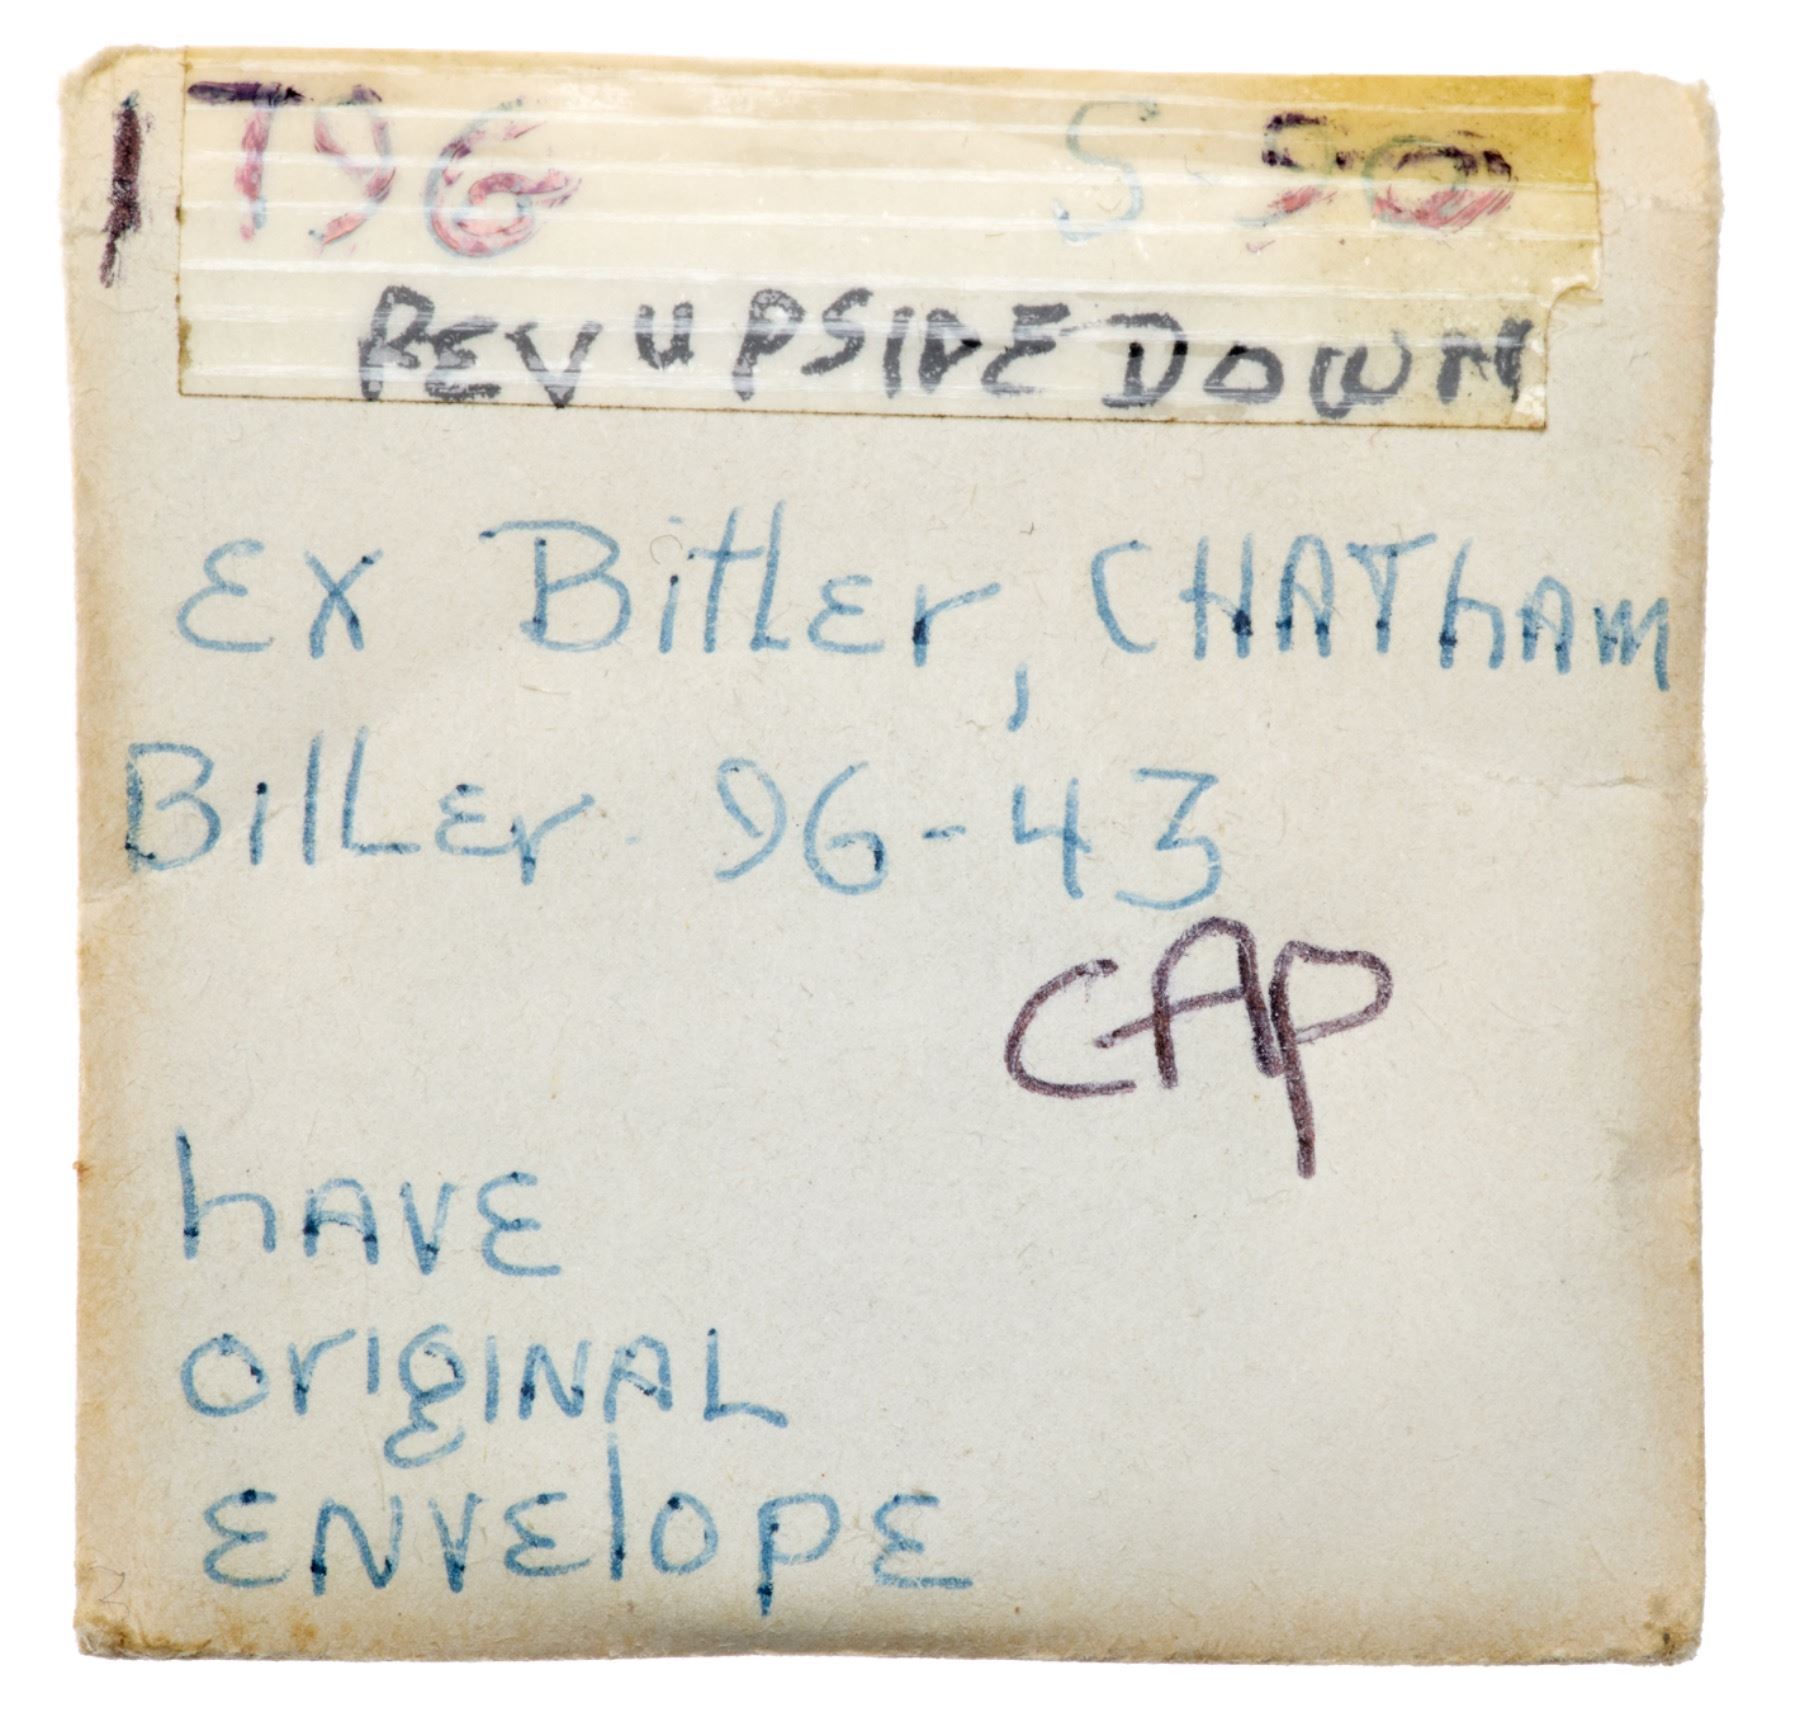 1796 S-90
REV UPSIDE DOWN
Ex Bitler, CHAThAm
Biller 96-43
CAP
hAVE
OrigiNAL
ENVElOPE